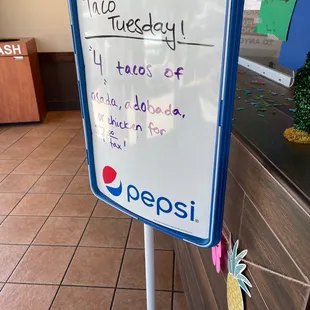 Taco
Tuesday!
4 tacos of
asada, adobada,
chicken for
+ tax!
pepsi